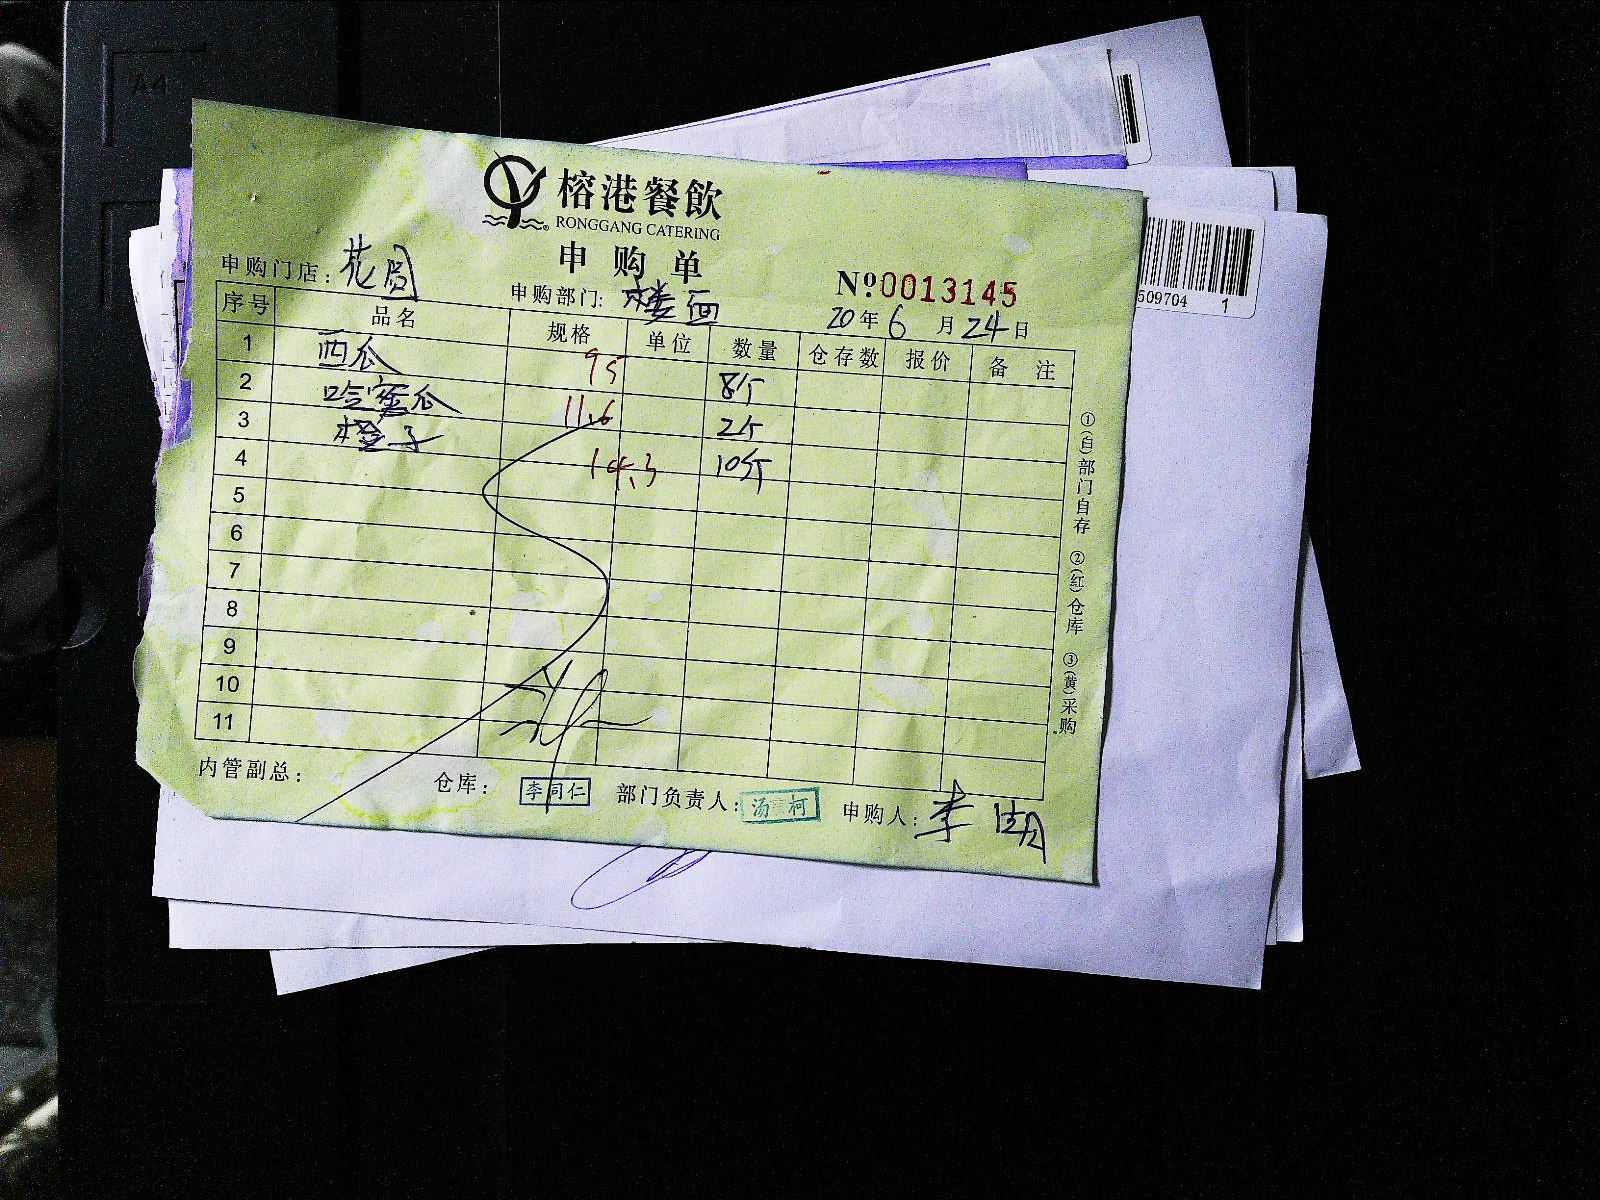 A4
榕港餐飲
RONGGANG CATERING
申购单
申购门店：花园 申购部门：楼面 №0013145
20年6月24日
序号 品名 规格 单位 数量 仓存数 报价 备注
1 西瓜 95 8个
2 哈蜜瓜 11.6 2个
3 橙子 14.3 10斤
4
5
6
7
8
9
10
11
①(白)部门自存 ②(红)仓库 ③(黄)采购
内管副总： 仓库：李同仁 部门负责人：汤柯 申购人：李
509704 1